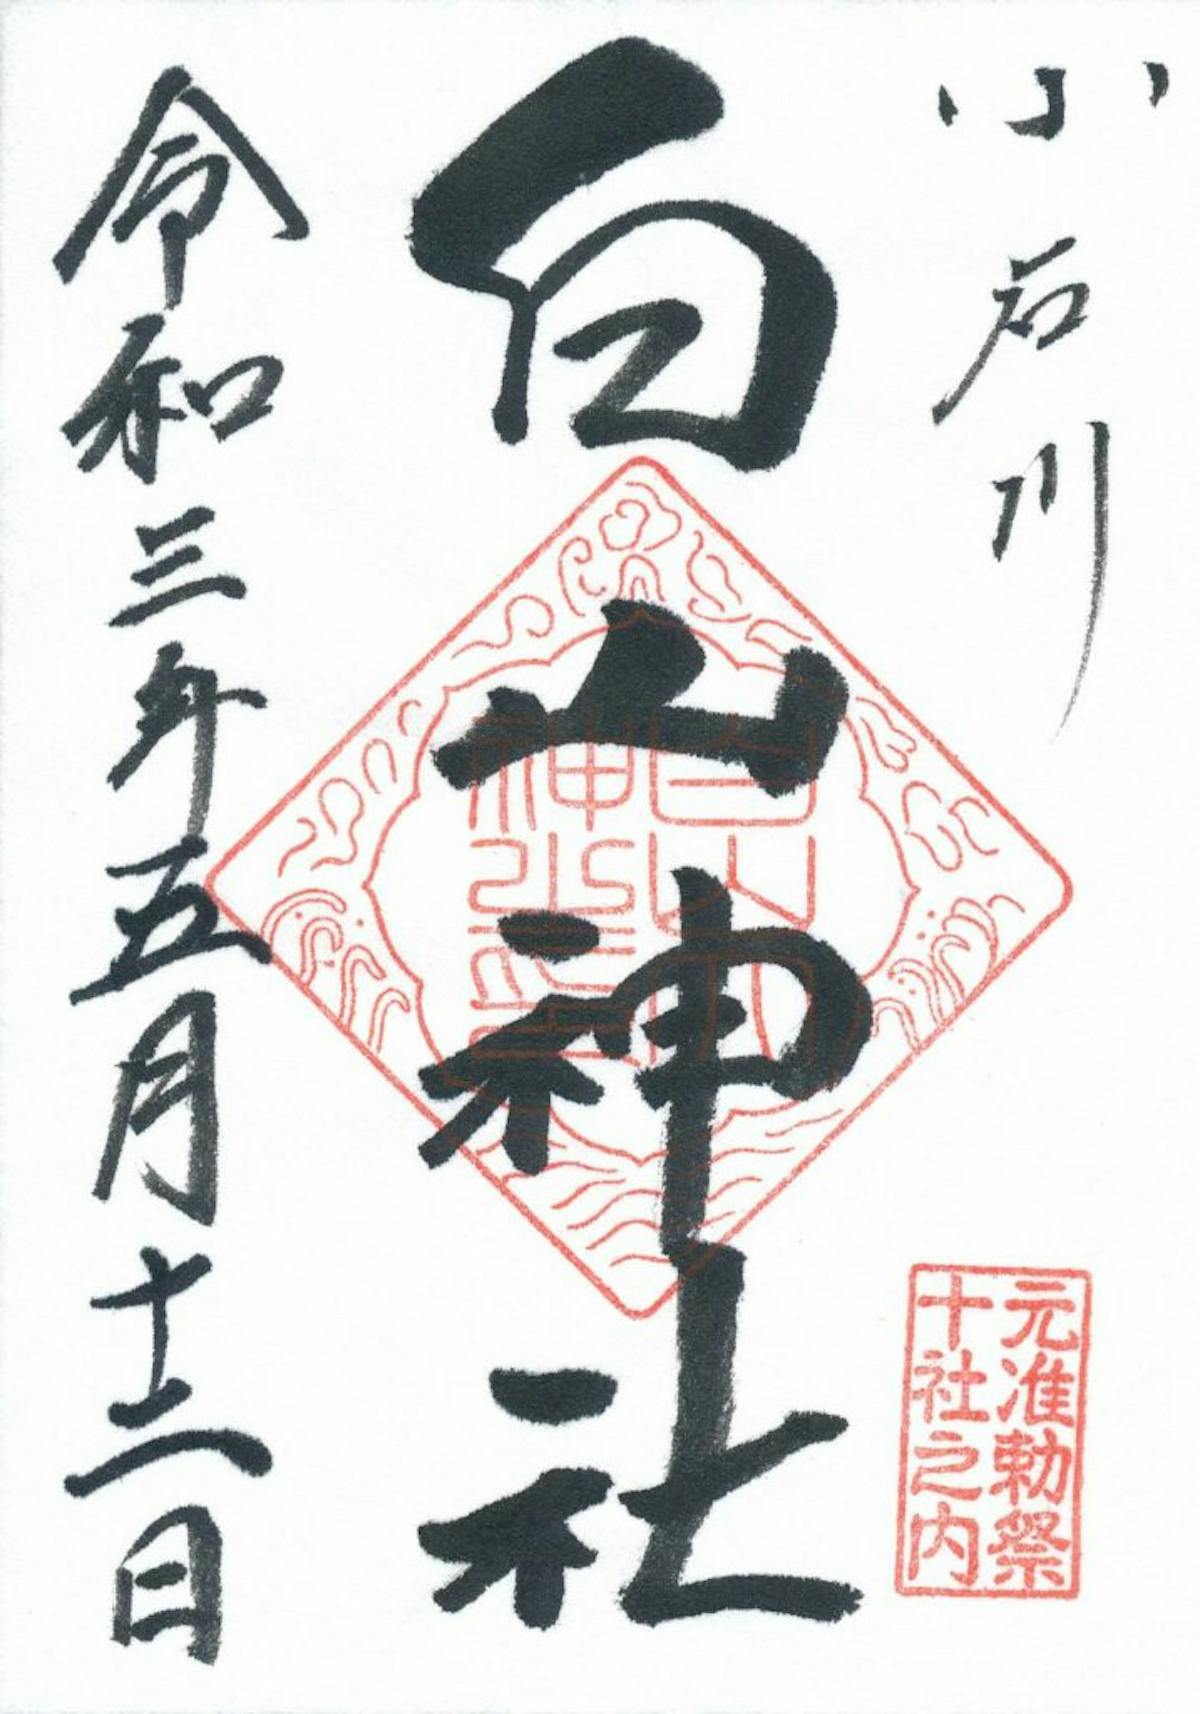 小石川
白山神社
令和三年五月十二日
白山
神社
元准勅祭
十社之内